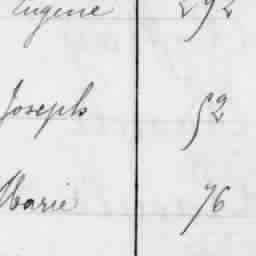 Eugene 292
Joseph 52
Marie 76